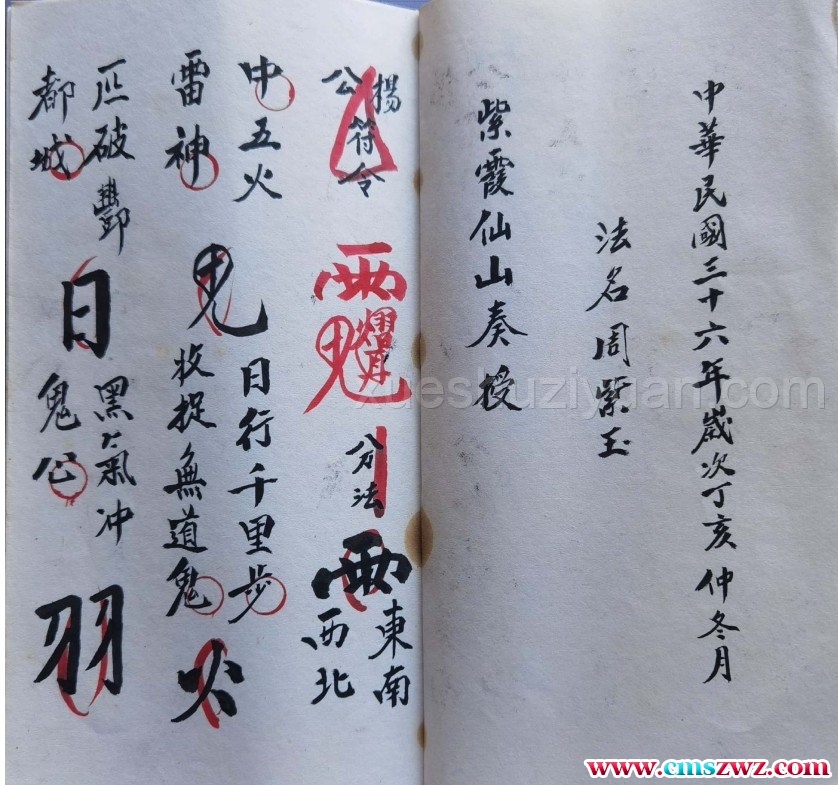 中華民國三十六年歲次丁亥仲冬月
法名周紫玉
紫霞仙山奏授
楊公符令
分法
雨
東南
西北
中五火
日行千里步
雷神
收捉無道鬼
火
破酆
都城
日
黑氣冲
鬼公
羽
xueshuziyuan.com
www.cmszwz.com